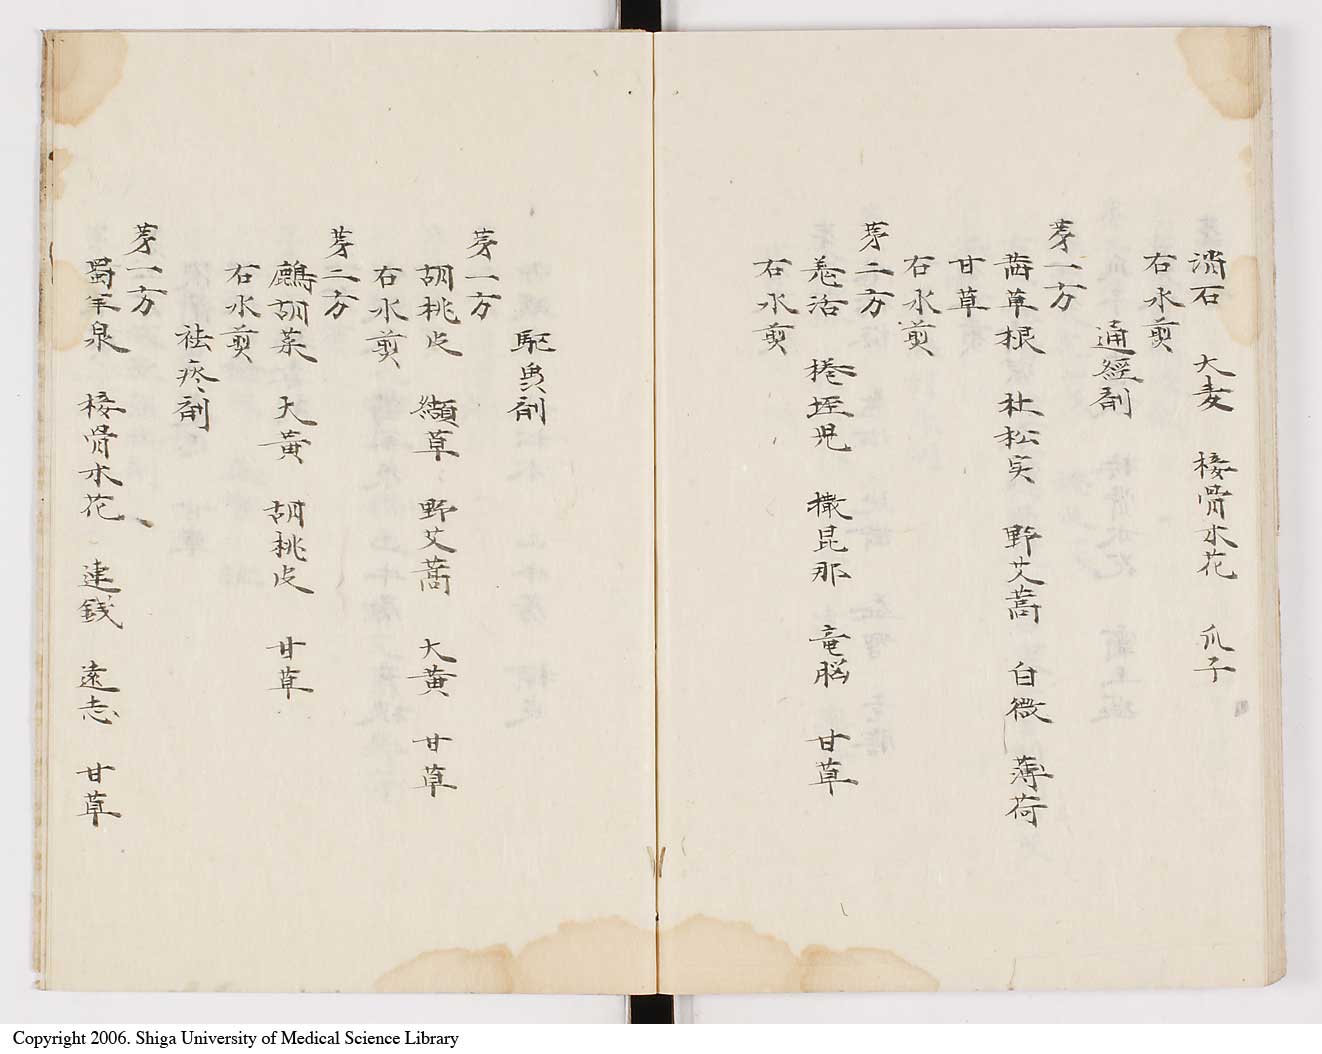 消石　大麦　接骨木花　瓜子
右水煎
通経剤
茅一方
茜草根　杜松実　野艾蒿　白微　薄荷
甘草
右水煎
茅二方
羌活　捲埀児　撒昆那　竜脳　甘草
右水煎
駆臾剤
茅一方
胡桃皮　纈草　野艾蒿　大黄　甘草
右水煎
茅二方
鷓胡菜　大黄　胡桃皮　甘草
右水煎
祛痰剤
茅一方
蜀羊泉　接骨木花　連銭　遠志　甘草
Copyright 2006. Shiga University of Medical Science Library